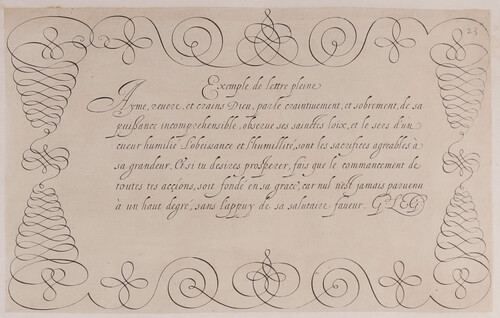 23
Exemple de lettre pleine
Ayme, revere, et crains Dieu, parle craintivement, et sobrement, de sa
puissance incomprehensible, observe ses sainctes loix, et le sers d'un
cueur humilié L'obeissance et l'humillité, sont les sacrifices agreables à
sa grandeur. Et si tu desires prosperer, fais que le commantement de
toutes tes actions, soit fondé en sa grace, car nul n'est jamais parvenu
à un haut degré, sans l'appuy de sa salutaire faveur.